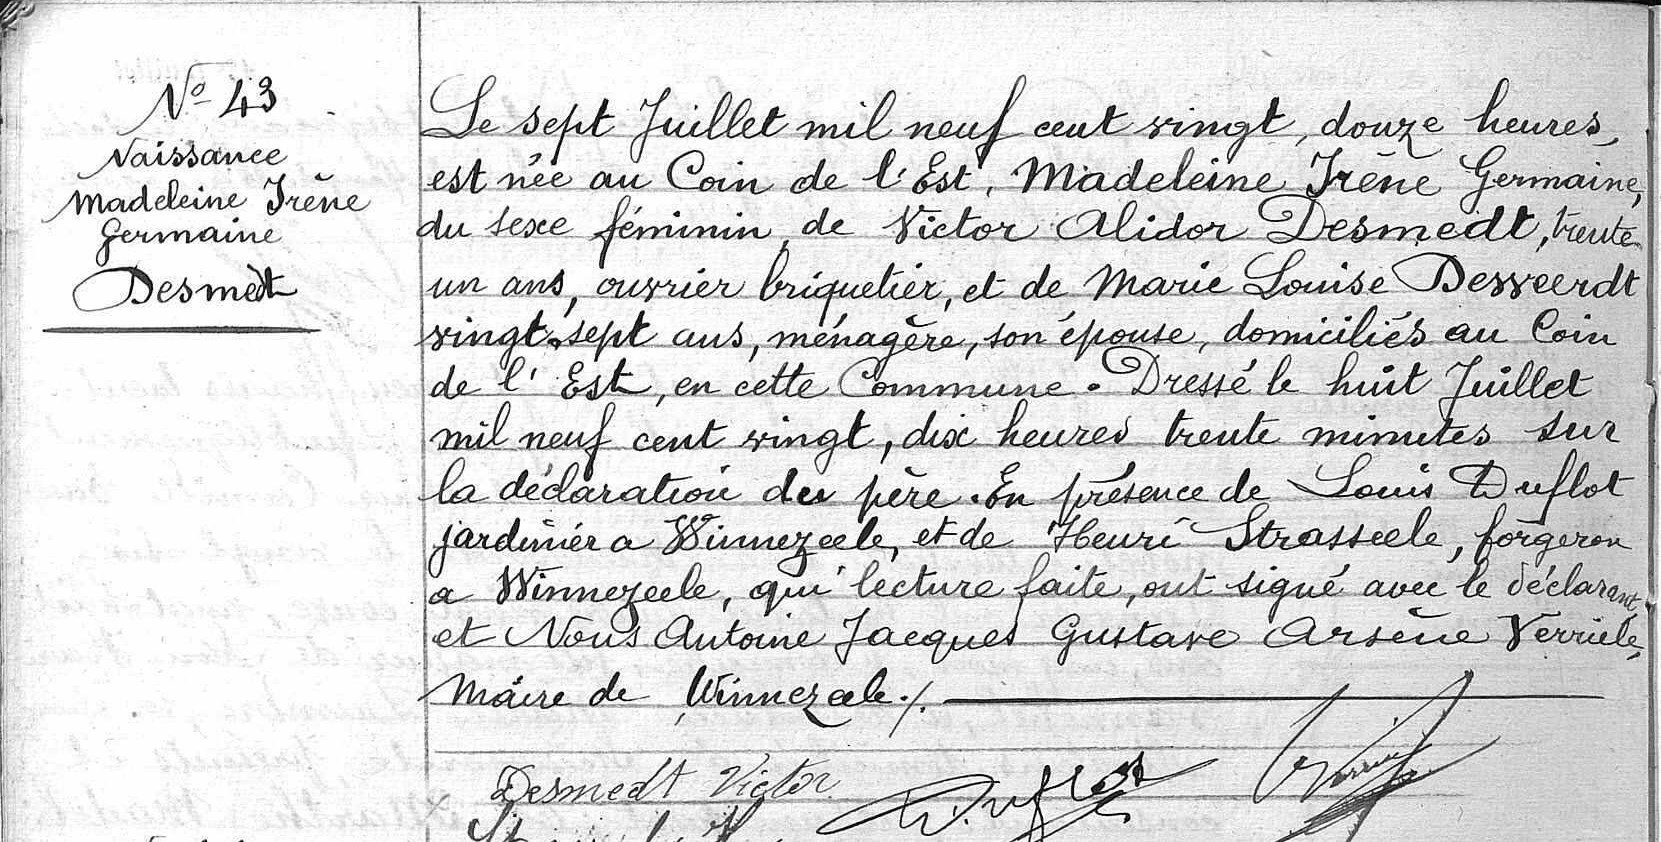 No 43
Naissance
Madeleine Irène
Germaine
Desmedt
Le sept Juillet mil neuf cent vingt, douze heures,
est née au Coin de l'Est, Madeleine Irène Germaine,
du sexe féminin, de Victor Alidor Desmedt, trente
un ans, ouvrier briquetier, et de Marie Louise Desveerdt
vingt-sept ans, ménagère, son épouse, domiciliés au Coin
de l'Est, en cette Commune. Dressé le huit Juillet
mil neuf cent vingt, dix heures trente minutes sur
la déclaration du père. En présence de Louis Duflot
jardinier a Winnezeele, et de Henri Strasseele, forgeron
a Winnezeele, qui lecture faite, ont signé avec le déclarant,
et Nous Antoine Jacques Gustave Arsène Verriele,
Maire de Winnezeele ./.
Desmedt Victor
Duflot